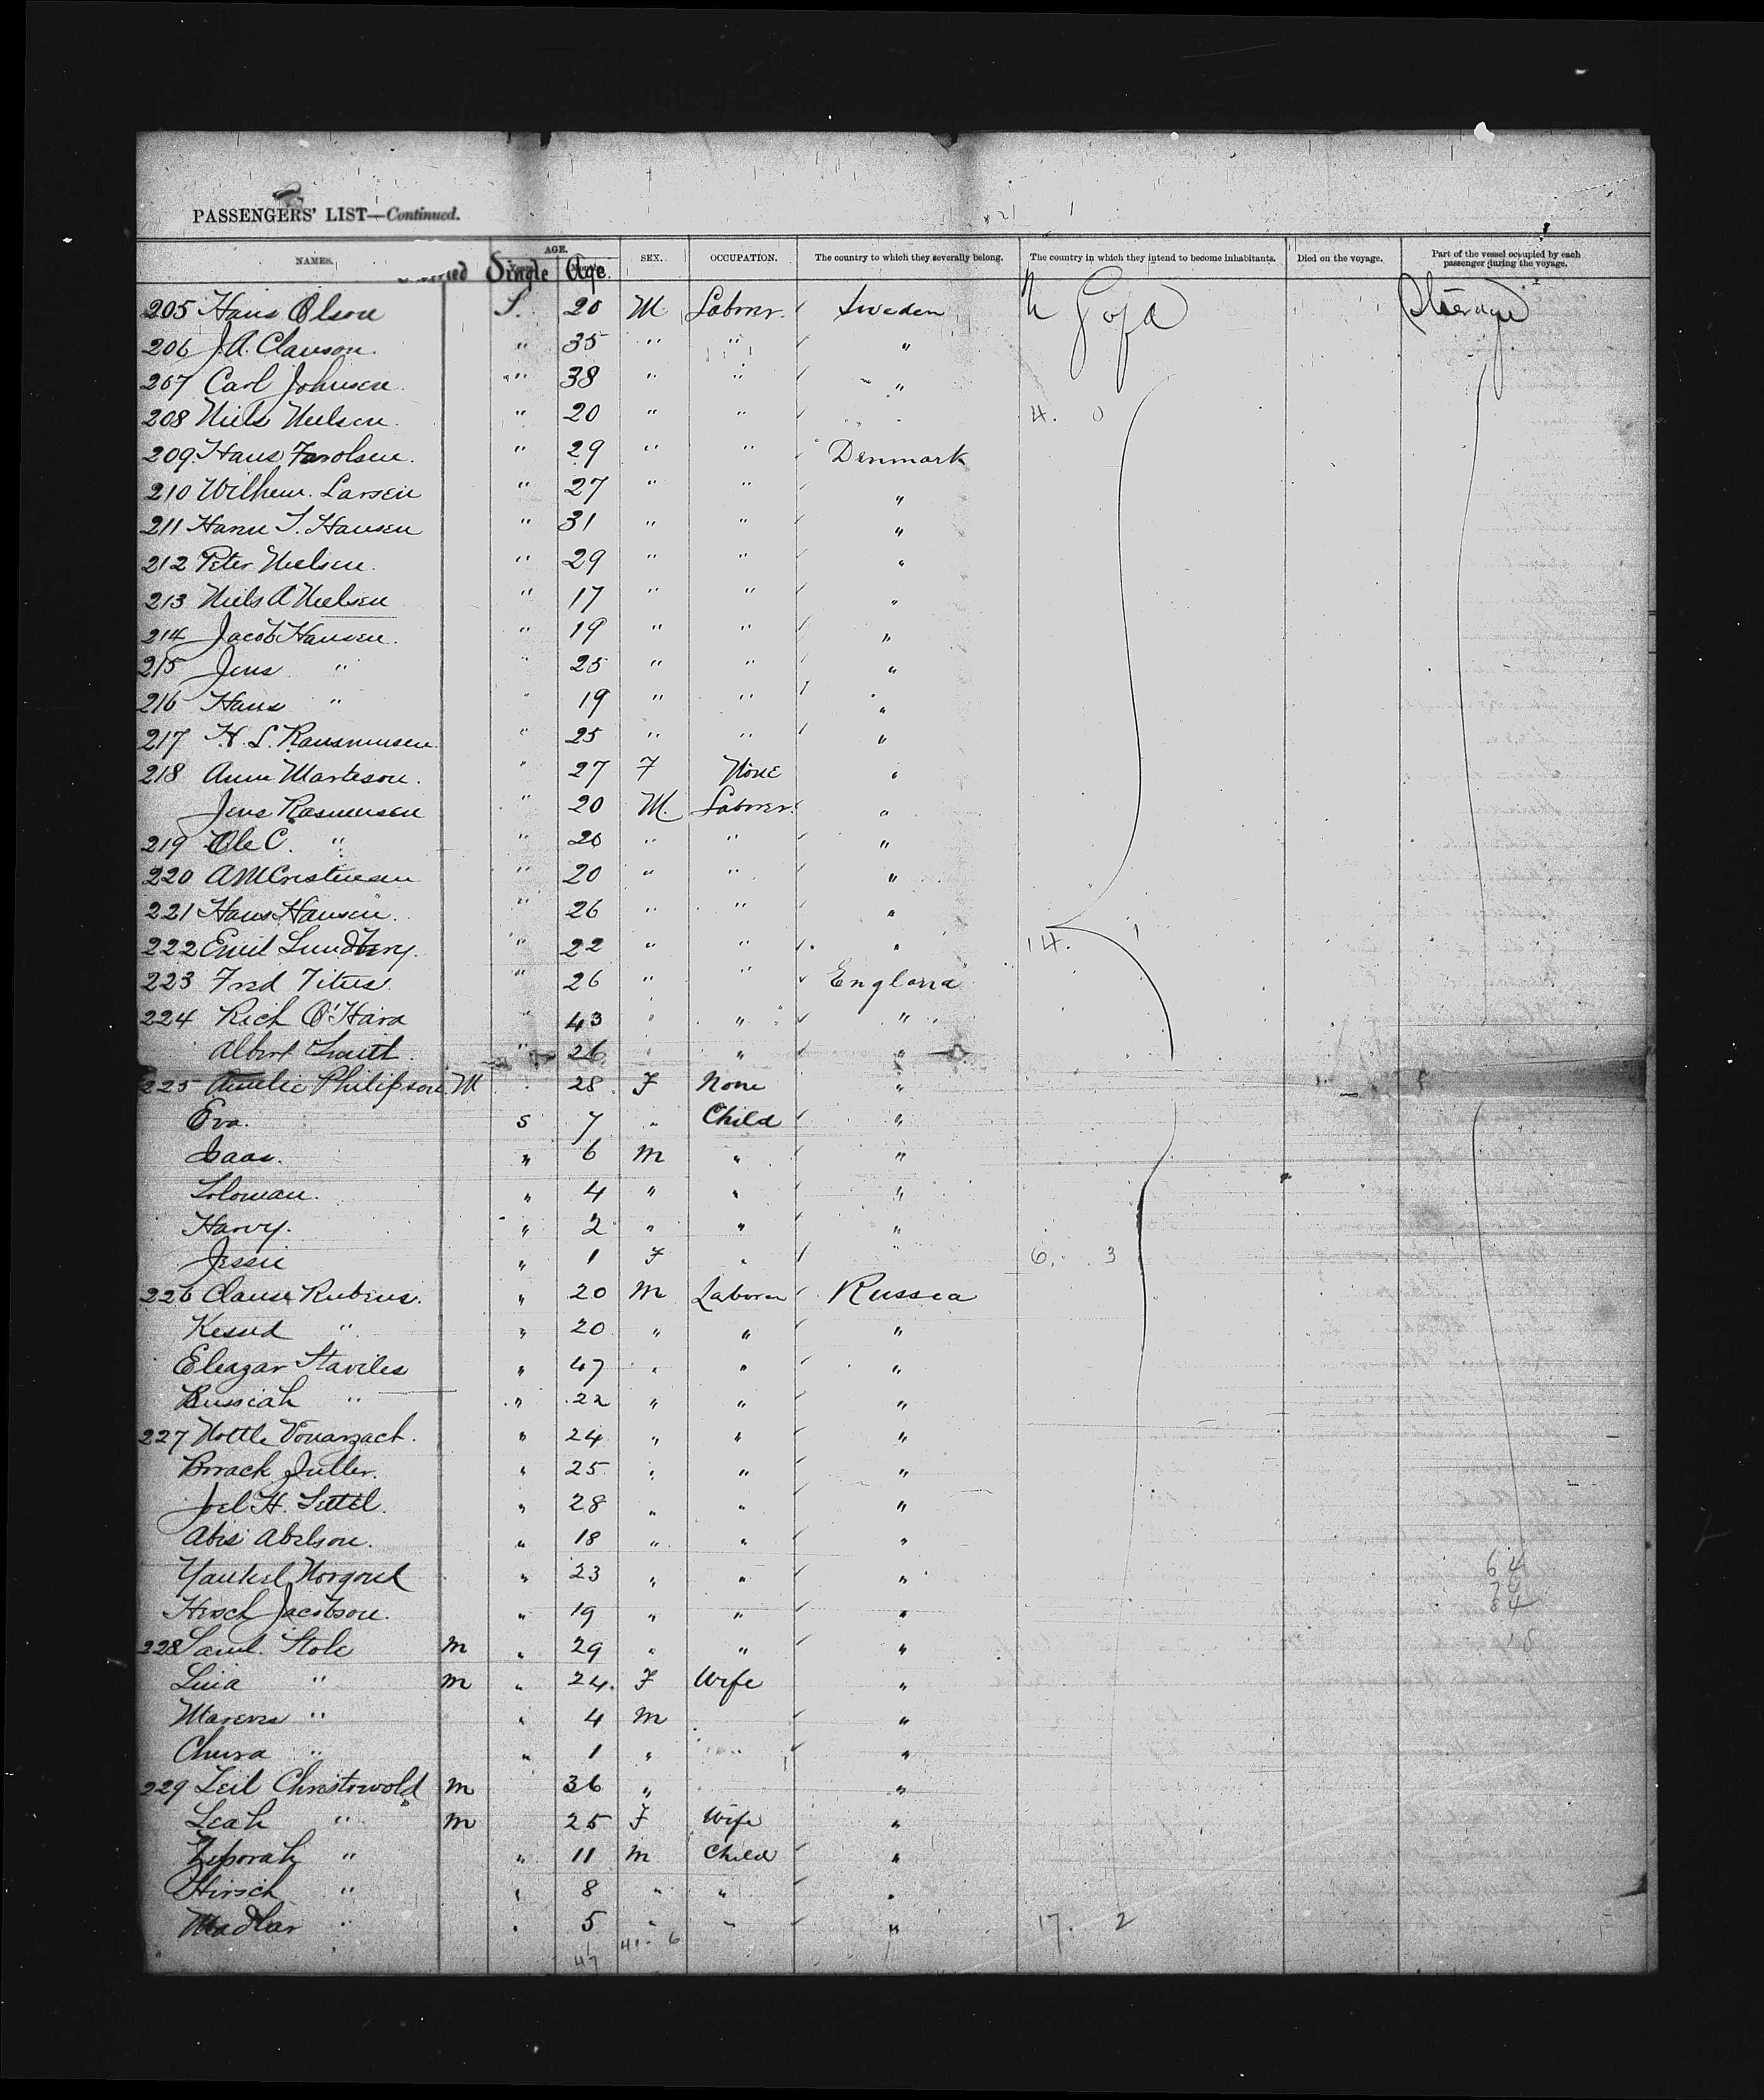 PASSENGERS' LIST—Continued.
NAMES. Married Single AGE. Age. SEX. OCCUPATION. The country to which they severally belong. The country in which they intend to become inhabitants. Died on the voyage. Part of the vessel occupied by each passenger during the voyage.
205 Hans Olson S. 20 M. Labrer. Sweden Steerage
206 J.A. Clauson. " 35 " " "
207 Carl Johnsen. " 38 " " "
208 Niels Nielsen. " 20 " " 4. 0
209. Hans " 29 " " Denmark
210 Wilhem. Larsen " 27 " " "
211 Hans T. Hansen " 31 " " "
212 Peter Nielsen. " 29 " " "
213 Niels A Nielsen " 17 " " "
214 Jacob Hansen. " 19 " " "
215 Jens " " 25 " " "
216 Hans " " 19 " " "
217 H. L. Rausmusen. " 25 " " "
218 Anne Marteson. " 27 F None "
Jens Rasmusen " 20 M. Labrer. "
219 Ole C. " " 20 " " "
220 A M Cristensen " 20 " " "
221 Hans Hansen. " 26 " " "
222 Emil Lundberg. " 22 " " " 14. 1
223 Fred Titus. " 26 " " England
224 Rich O'Hara " 43 " " "
Albert Smith. " 26 " " "
225 Amelie Philipson. M 28 F None "
Eva. S 7 " Child "
Isaac. " 6 M " "
Soloman. " 4 " " "
Harry. " 2 " " "
Jessie " 1 F " " 6. 3
226 Rubens. " 20 M Laborer Russia
" " 20 " " "
Eleazar Staviles " 47 " " "
" " 22 " " "
227 " 24 " " "
" 25 " " "
Joel H. " 28 " " "
Abis Abelson. " 18 " " "
Yankel " 23 " " " 64
Hirsch Jacobson. " 19 " " "
228 Saml. Stole M " 29 " " "
Lina " M " 24. F Wife "
" " 4 M "
" " 1 " "
229 Leil Christowold M 36 " "
Leah " M 25 F Wife "
Zeporah " " 11 M Child "
Hirsch " " 8 " " "
" " 5 " " " 17. 2
47 41- 6